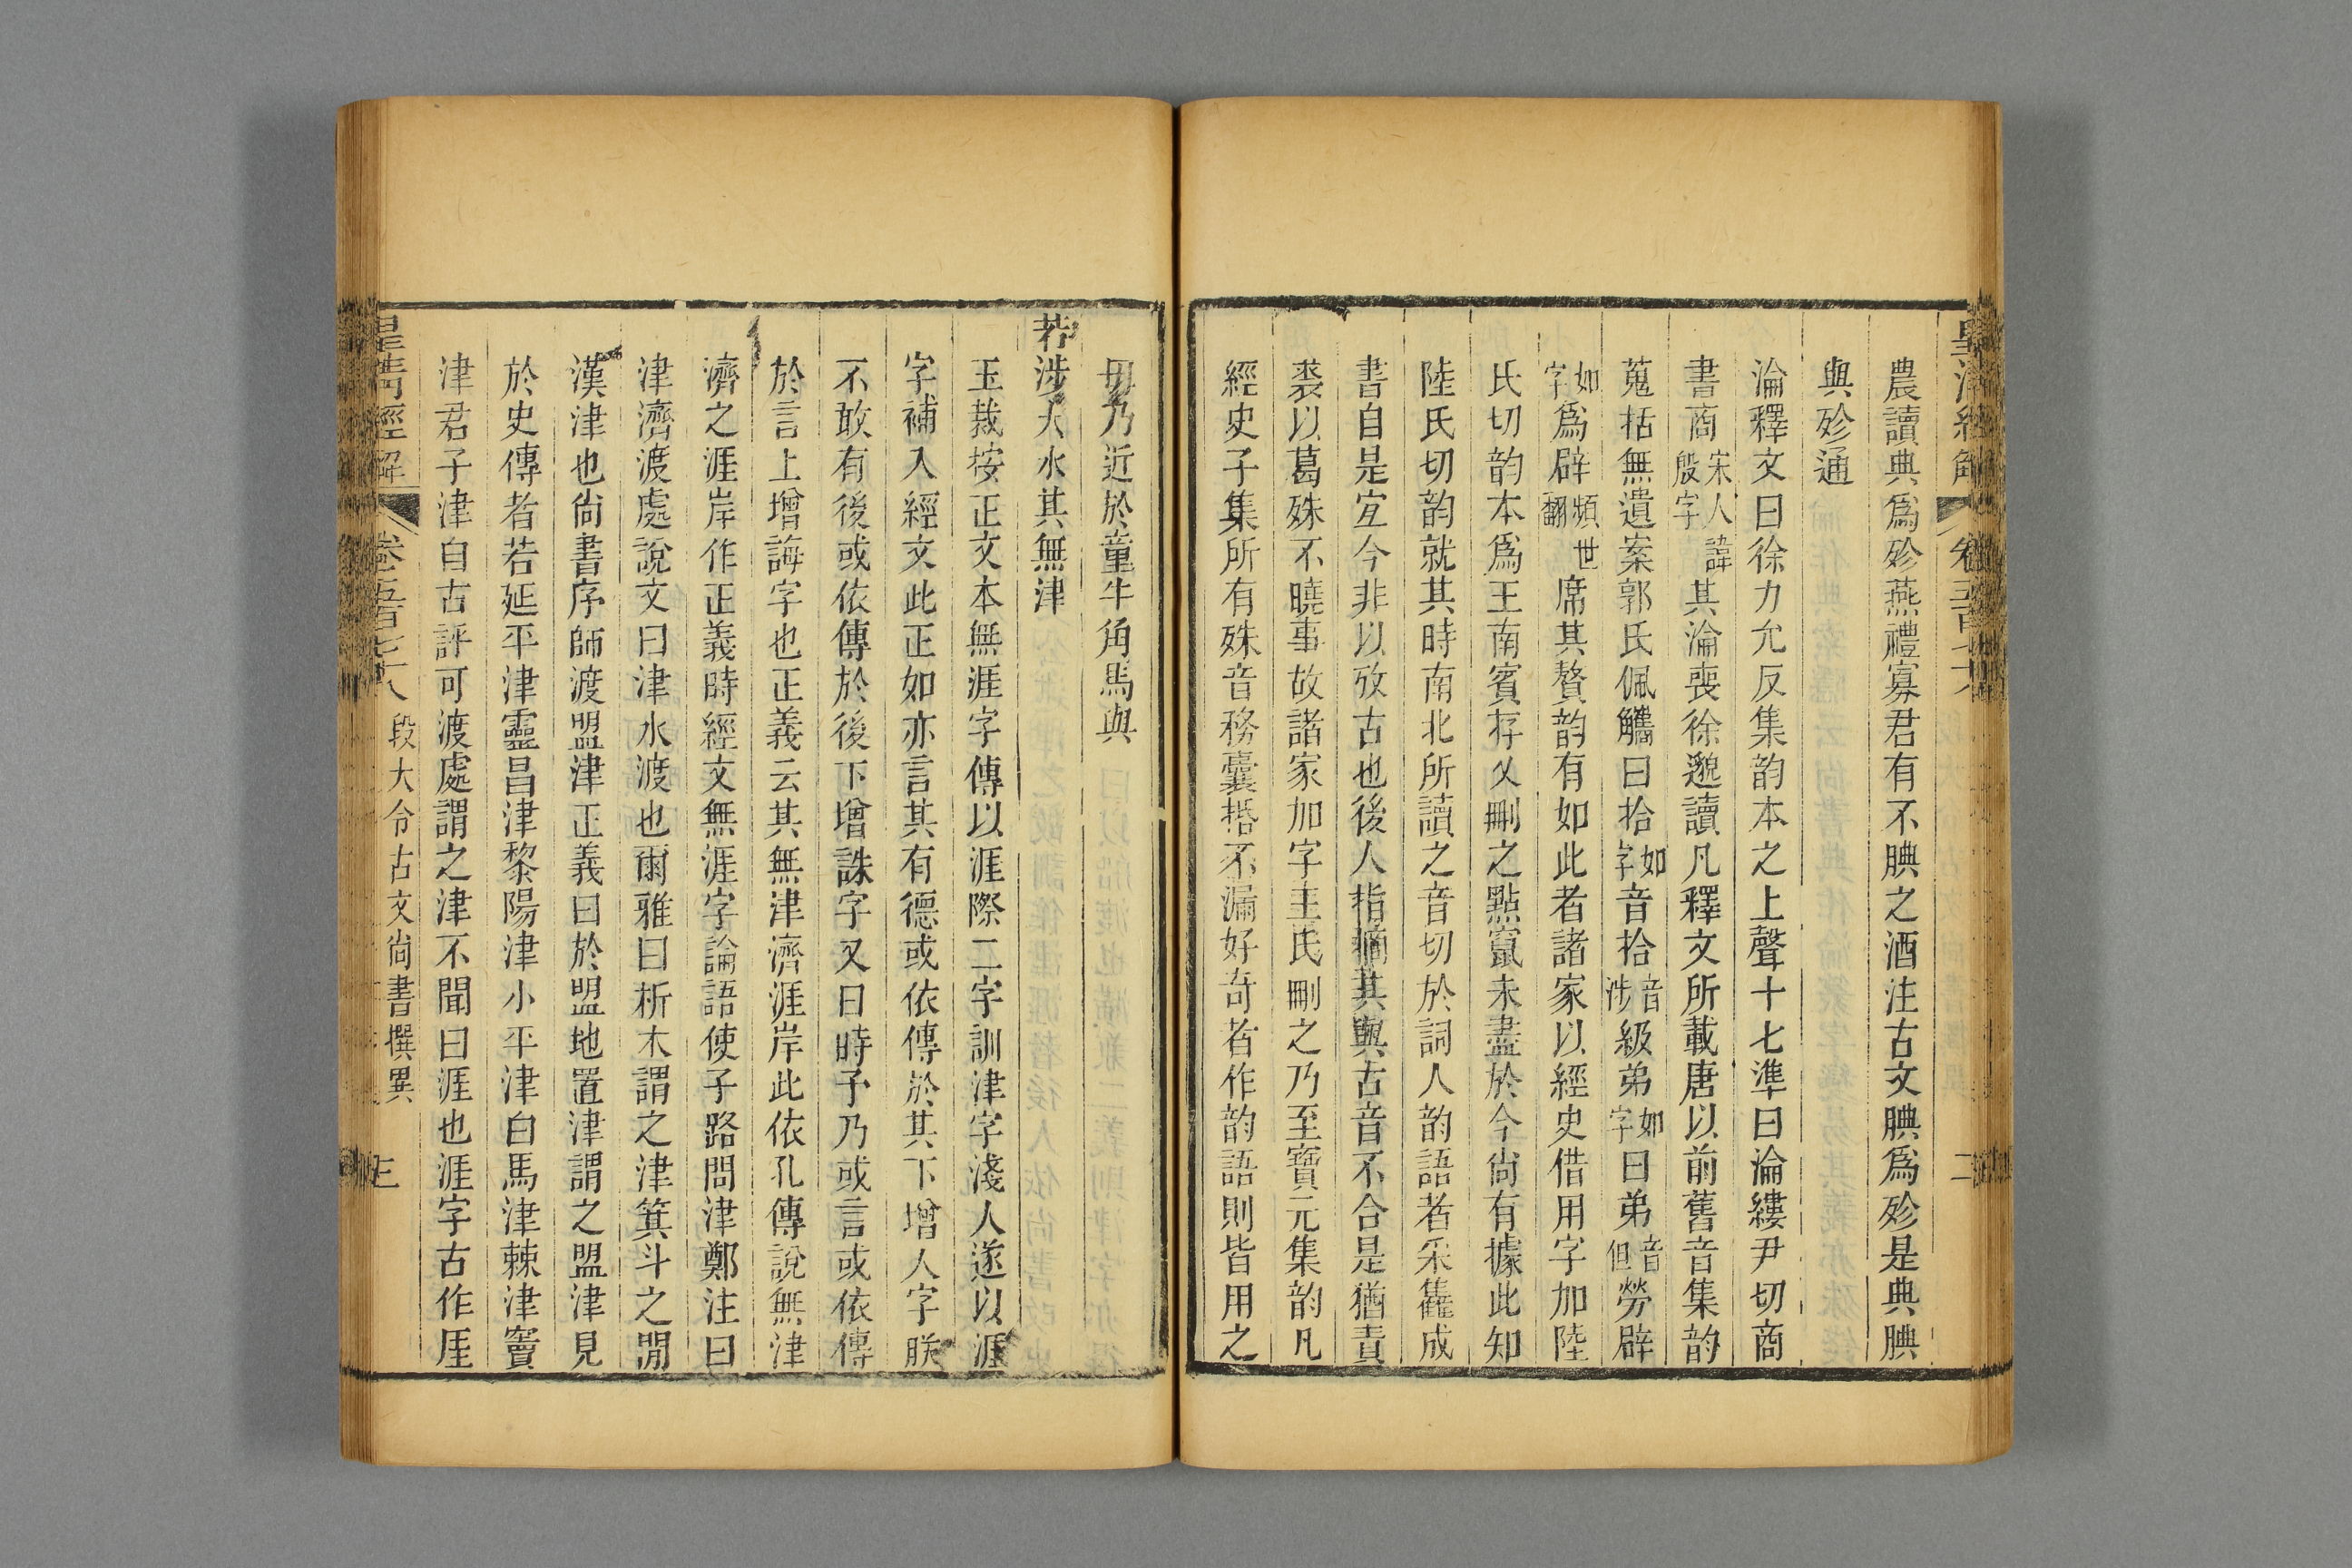 農讀典爲殄燕禮寡君有不腆之酒注古文腆爲殄是典腆
與殄通
淪釋文曰徐力允反集韵本之上聲十七準曰淪縷尹切商
書商宋人諱殷字其淪喪徐邈讀凡釋文所載唐以前舊音集韵
蒐括無遺案郭氏佩觿曰拾如字音拾音涉級弟如字曰弟音但勞辟
如字爲辟頻世翻席其贅韵有如此者諸家以經史借用字加陸
氏切韵本爲王南賓存乂刪之點竄未盡於今尙有據此知
陸氏切韵就其時南北所讀之音切於詞人韵語者采雥成
書自是宐今非以攷古也後人指摘其與古音不合是猶責
裘以葛殊不曉事故諸家加字主氏刪之乃至寶元集韵凡
經史子集所有殊音務囊括不漏好奇者作韵語則皆用之
毋乃近於童牛角馬與
若涉大水其無津
玉裁按正文本無涯字傳以涯際二字訓津字淺人遂以涯
字補入經文此正如亦言其有德或依傳於其下增人字朕
不敢有後或依傳於後下增誅字又曰時予乃或言或依傳
於言上增誨字也正義云其無津濟涯岸此依孔傳說無津
濟之涯岸作正義時經文無涯字論語使子路問津鄭注曰
津濟渡處說文曰津水渡也爾雅曰析木謂之津箕斗之閒
漢津也尙書序師渡盟津正義曰於盟地置津謂之盟津見
於史傳者若延平津靈昌津黎陽津小平津白馬津棘津竇
津君子津自古評可渡處謂之津不聞曰涯也涯字古作厓
皇淸經解 卷五百七十八 段大令古文尙書撰異 三